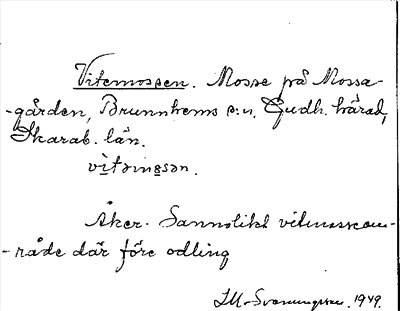 Vitemossen. Mosse på Mossa-
-gården, Brunnhems s:n, Gudh. härad,
Skarab. län.
Åker. Sannolikt vitmosseom-
-råde där före odling
1949.